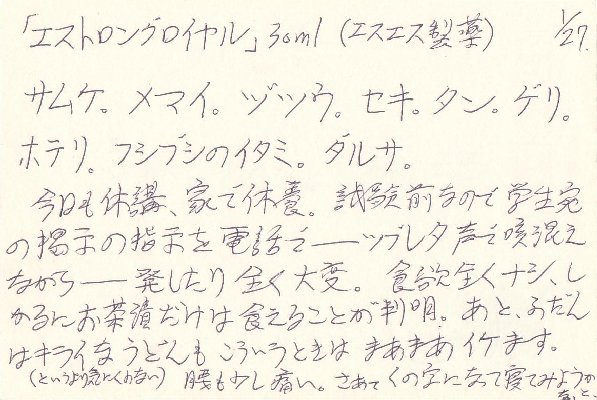 「エストロングロイヤル」30ml (エスエス製薬) 1/27.
サムケ。メマイ。ヅツウ。セキ。タン。ゲリ。
ホテリ。フシブシのイタミ。ダルサ。
今日も休講、家で休養。試験前なので学生宛
の掲示の指示を電話で——ツブレタ声で咳混え
ながら——発したり全く大変。食欲全くナシ、し
かるにお茶漬だけは食えることが判明。あと、ふだん
はキライなうどんもこういうときはまあまあイケます。
(というより気にくわない) 腰も少し痛い。さあてくの字になって寝てみようか
なっと。